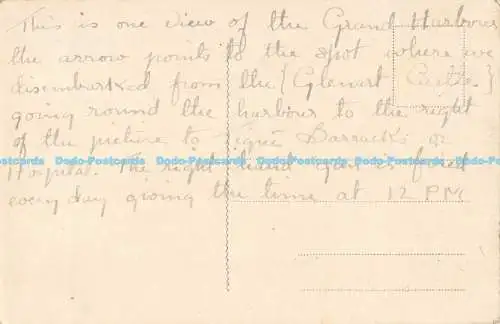 This is one view of the Grand Harbour
the arrow points to the spot where we
disembarked from the (Glenart Castle.)
going round the harbour to the right
of the picture to Tigné Barracks or
Hospital. The right hand gun is fired
everyday giving the time at 12 PM
Dodo-Postcards Dodo-Postcards Dodo-Postcards Dodo-Postcards Dodo-Postcards